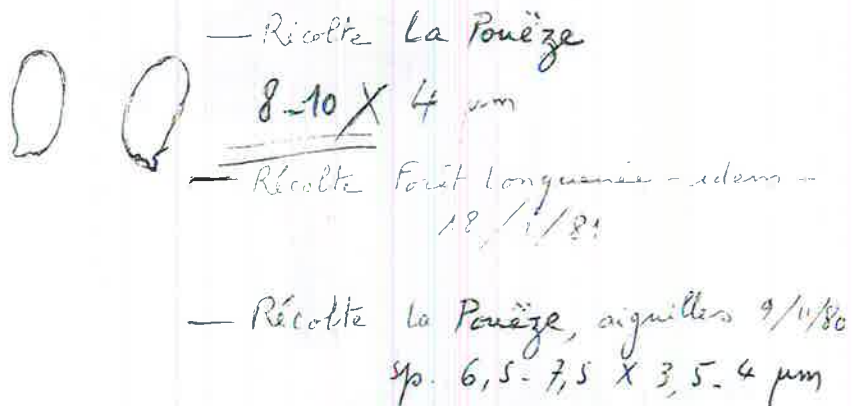 — Récolte La Pouëze
8-10 X 4 µm
— Récolte Forêt Longuenée - idem -
18/1/81
— Récolte La Pouëze, aiguilles 9/11/80
sp. 6,5-7,5 X 3,5-4 µm